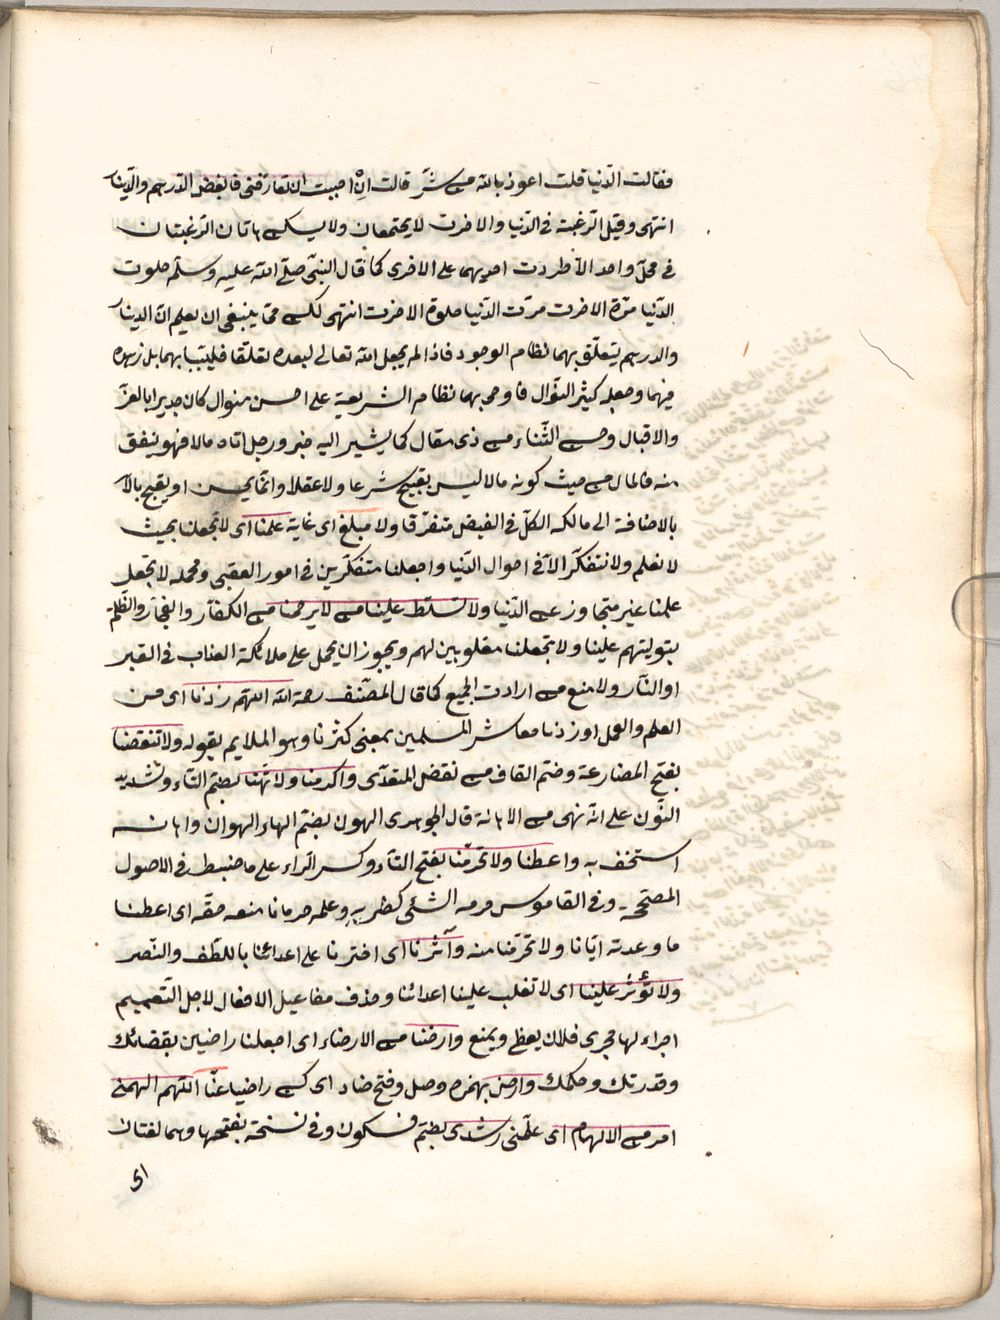 فقالت الدّنيا قلت اعوذ بالله من شرّ قالت ان احببت ان لا تعارفنى فابغض الدّرهم والدّينار
انتهى وقيل الرّغبة فى الدّنيا والاخرت لا يجتمعان ولا يسكن هاتان الرّغبتان
فى محلّ واحد الّا طردت احديهما على الاخرى كما قال النّبىّ صلّى الله عليه وسلّم حلوت
الدّنيا مرّة الاخرت مرّت الدّنيا حلوة الاخرت انتهى لكن ممّا ينبغى ان يعلم انّ الدينار
والدرهم يتعلّق بهما نظام الوجود فاذا لم يجعل الله تعالى لعبده تعلّقا قلبيّا بهما بل زهده
فيهما وجعله كثير النّوال فاوحى بهما نظام الشريعة على احسن منوال كان جديرا بالعزّ
والاقبال وحسن الثّناء من ذى مقال كما يشير اليه خبر ورجل اتاه مالا فهو ينفق
منه فالمال من حيث كونه مالا ليس بقبيح شرعا ولا عقلا وانّما يحسن او يقبح بالا
بالاضافة الى مالكه الكلّ فى الفيض متفرّقا ولا مبلغ اى غاية علمنا اى لا تجعلنا بحيث
لا نعلم ولا نتفكّر الّا فى احوال الدّنيا واجعلنا متفكّرين فى امور العقبى ومحمله لا تجعل
علمنا غير متجاوز عن الدّنيا ولا تسلّط علينا من لا يرحمنا من الكفّار والفجّار والظّلمة
بتوليتهم علينا ولا تجعلنا مغلوبين لهم ويجوز ان يحمل على ملائكة العذاب فى القبر
او النّار ولا منع من ارادت الجميع كما قال المصنّف رحمة الله اللهّم زدنا اى من
العلم والعمل او زدنا معاشر المسلمين بمعنى كثرنا وهو الملايم بقوله ولا تنقصنا
بفتح المضارعة وضمّ القاف من نقص المتعدّى واكرمنا ولا تهنّا بضمّ التّاء وتشديد
النّون على انّه نهى من الاهانة قال الجوهرى الهون بضمّ الهاء الهوان واهانه
استخف به واعطنا ولا تحرمّنا بفتح التّاء وكسر الرّاء على ما ضبط فى الاصول
المصحّحة وفى القاموس حرمه الشّئ كضربه وعلمه حرمانا منعه حقّه اى اعطنا
ما وعدته ايّانا ولا تحرّمنا منه وآثرنا اى اخترنا على اعدائنا باللّطف والنّصر
ولا تؤثر علينا اى لا تغلب علينا اعدائنا وحذف مفاعيل الافعال لاجل التّعميم
اجراء لها مجرى فلان يعطى ويمنع وارضنا من الارضاء اى اجعلنا راضين بقضائك
وقدرتك وحكمك وارض بهمزه وصل وفتح ضاد اى كن راضيا عنّا اللهّم الهمنى
امر من الالهام اى علّمنى رشدى بضمّ فسكون وفى نسخة بفتحها وهما لغتان
اى